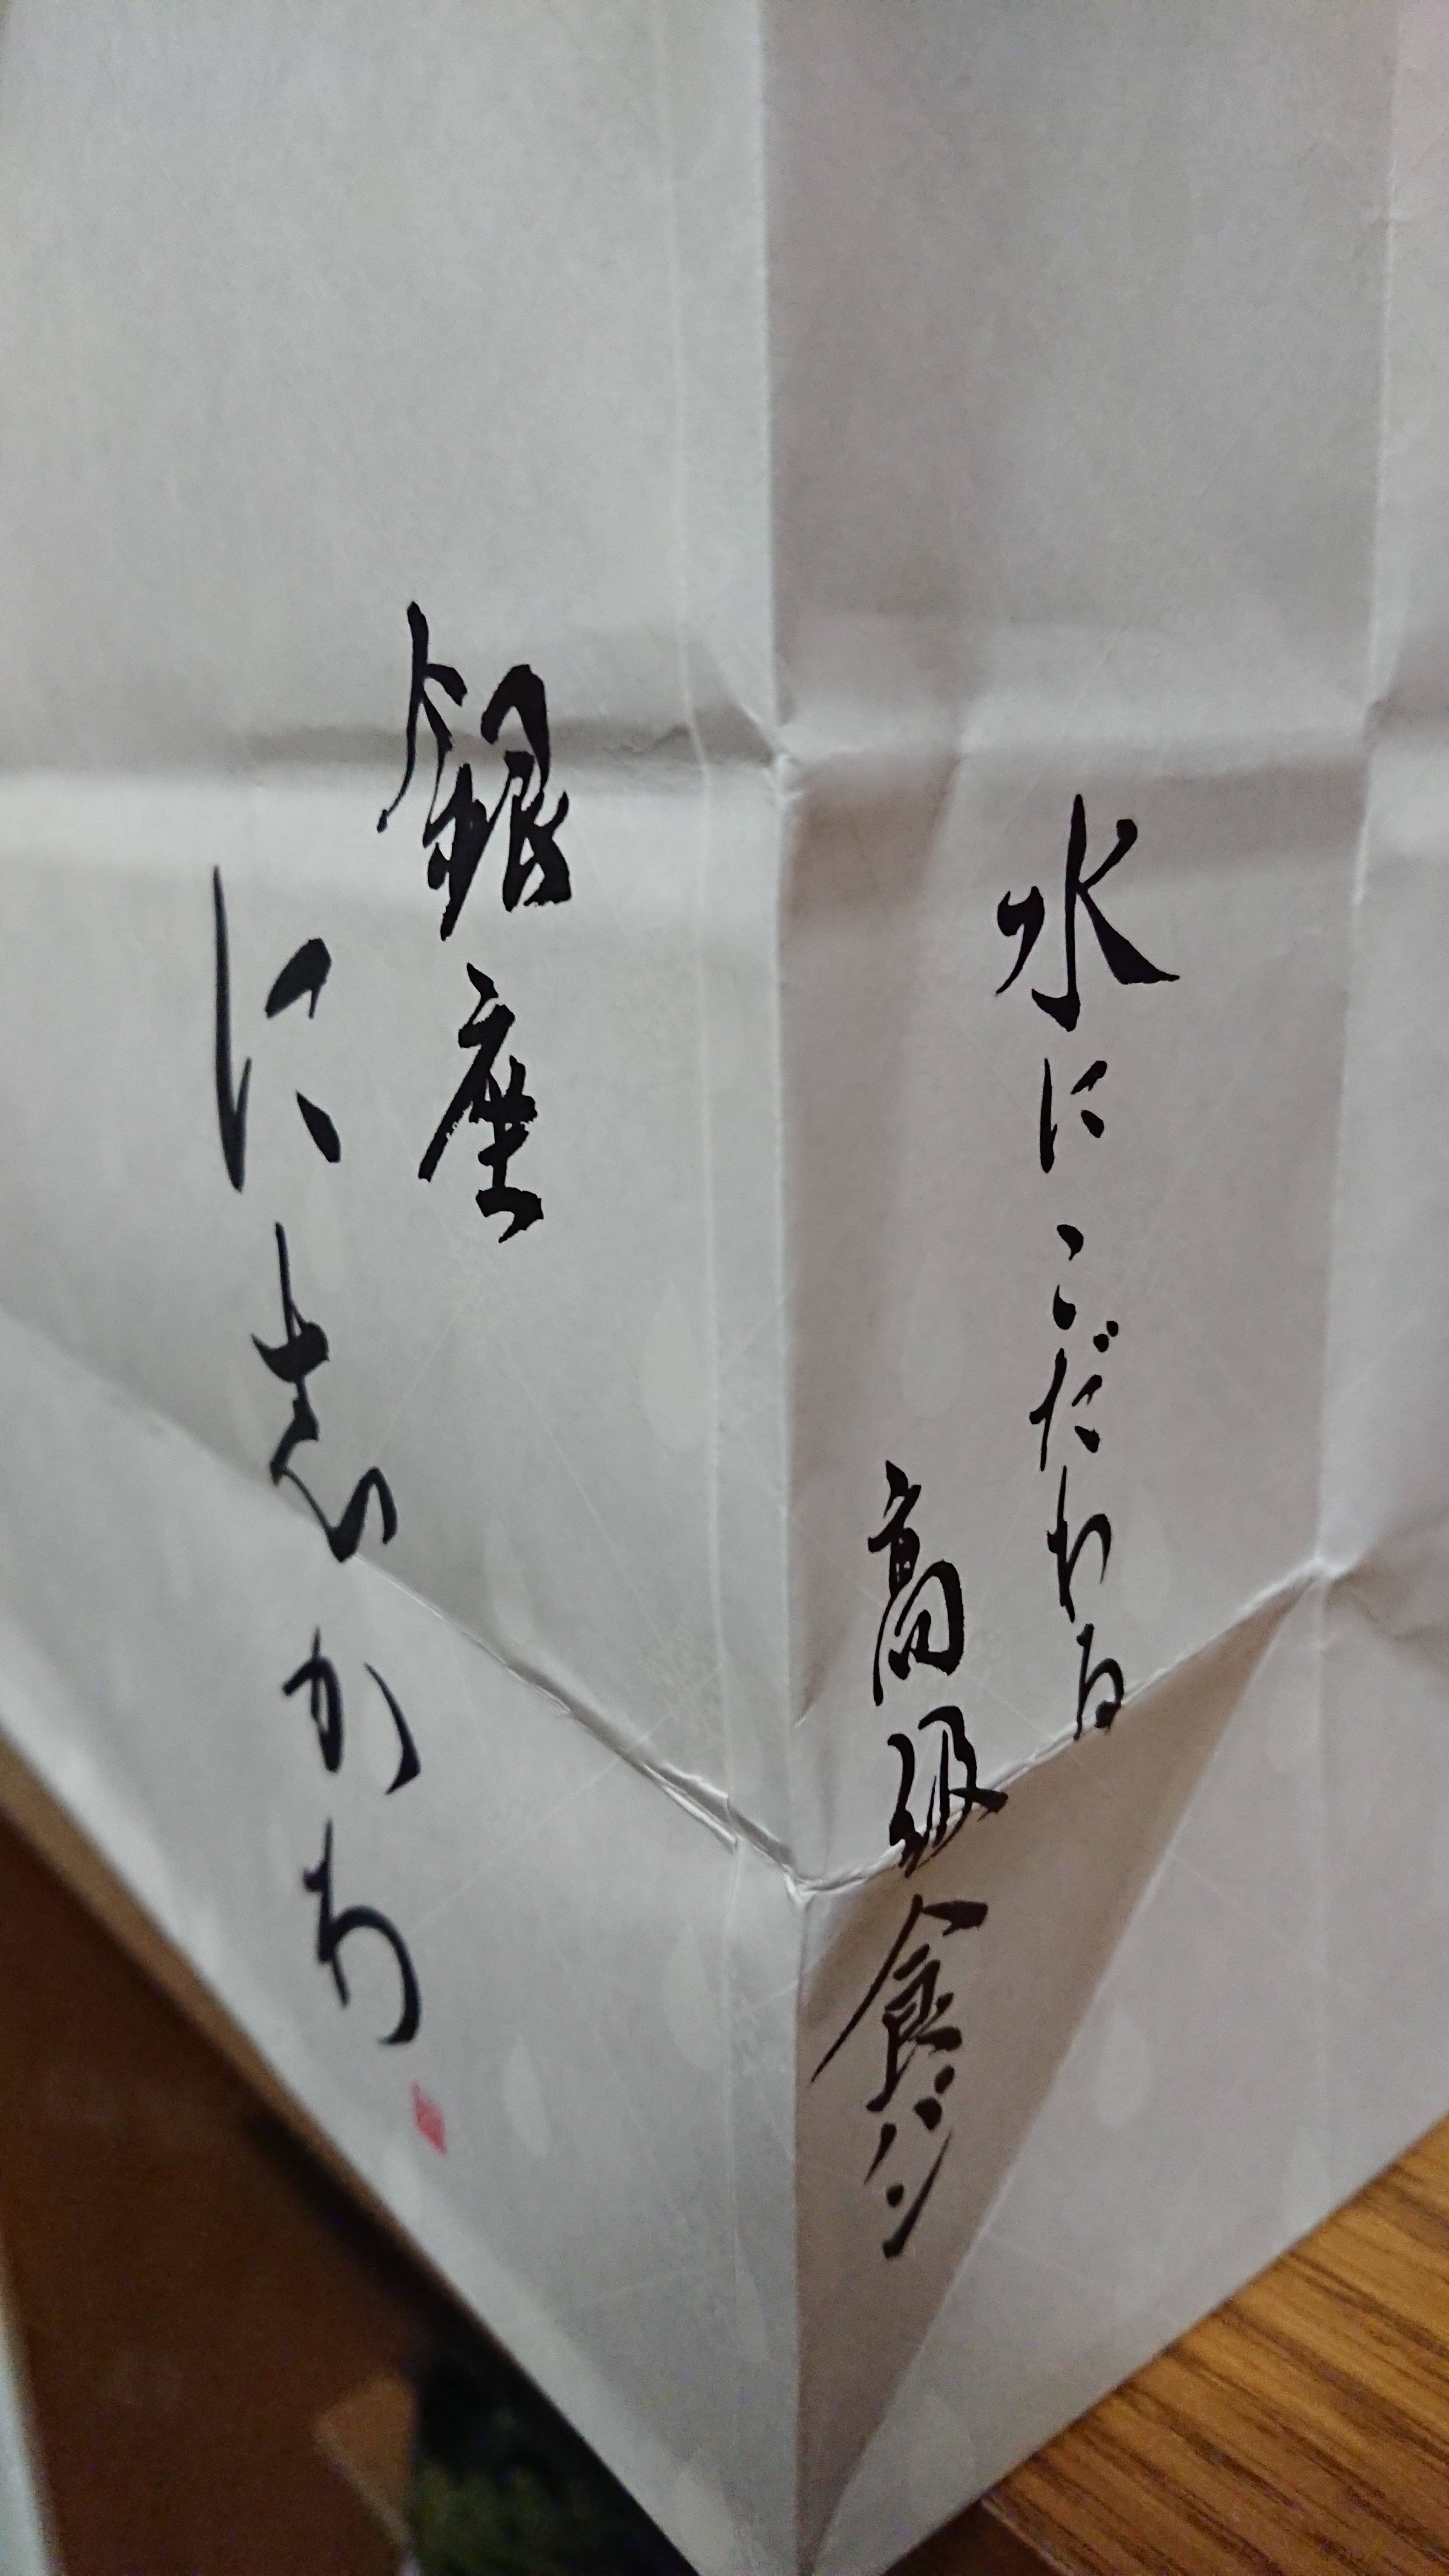 水にこだわる
高級食パン
銀座
に志かわ